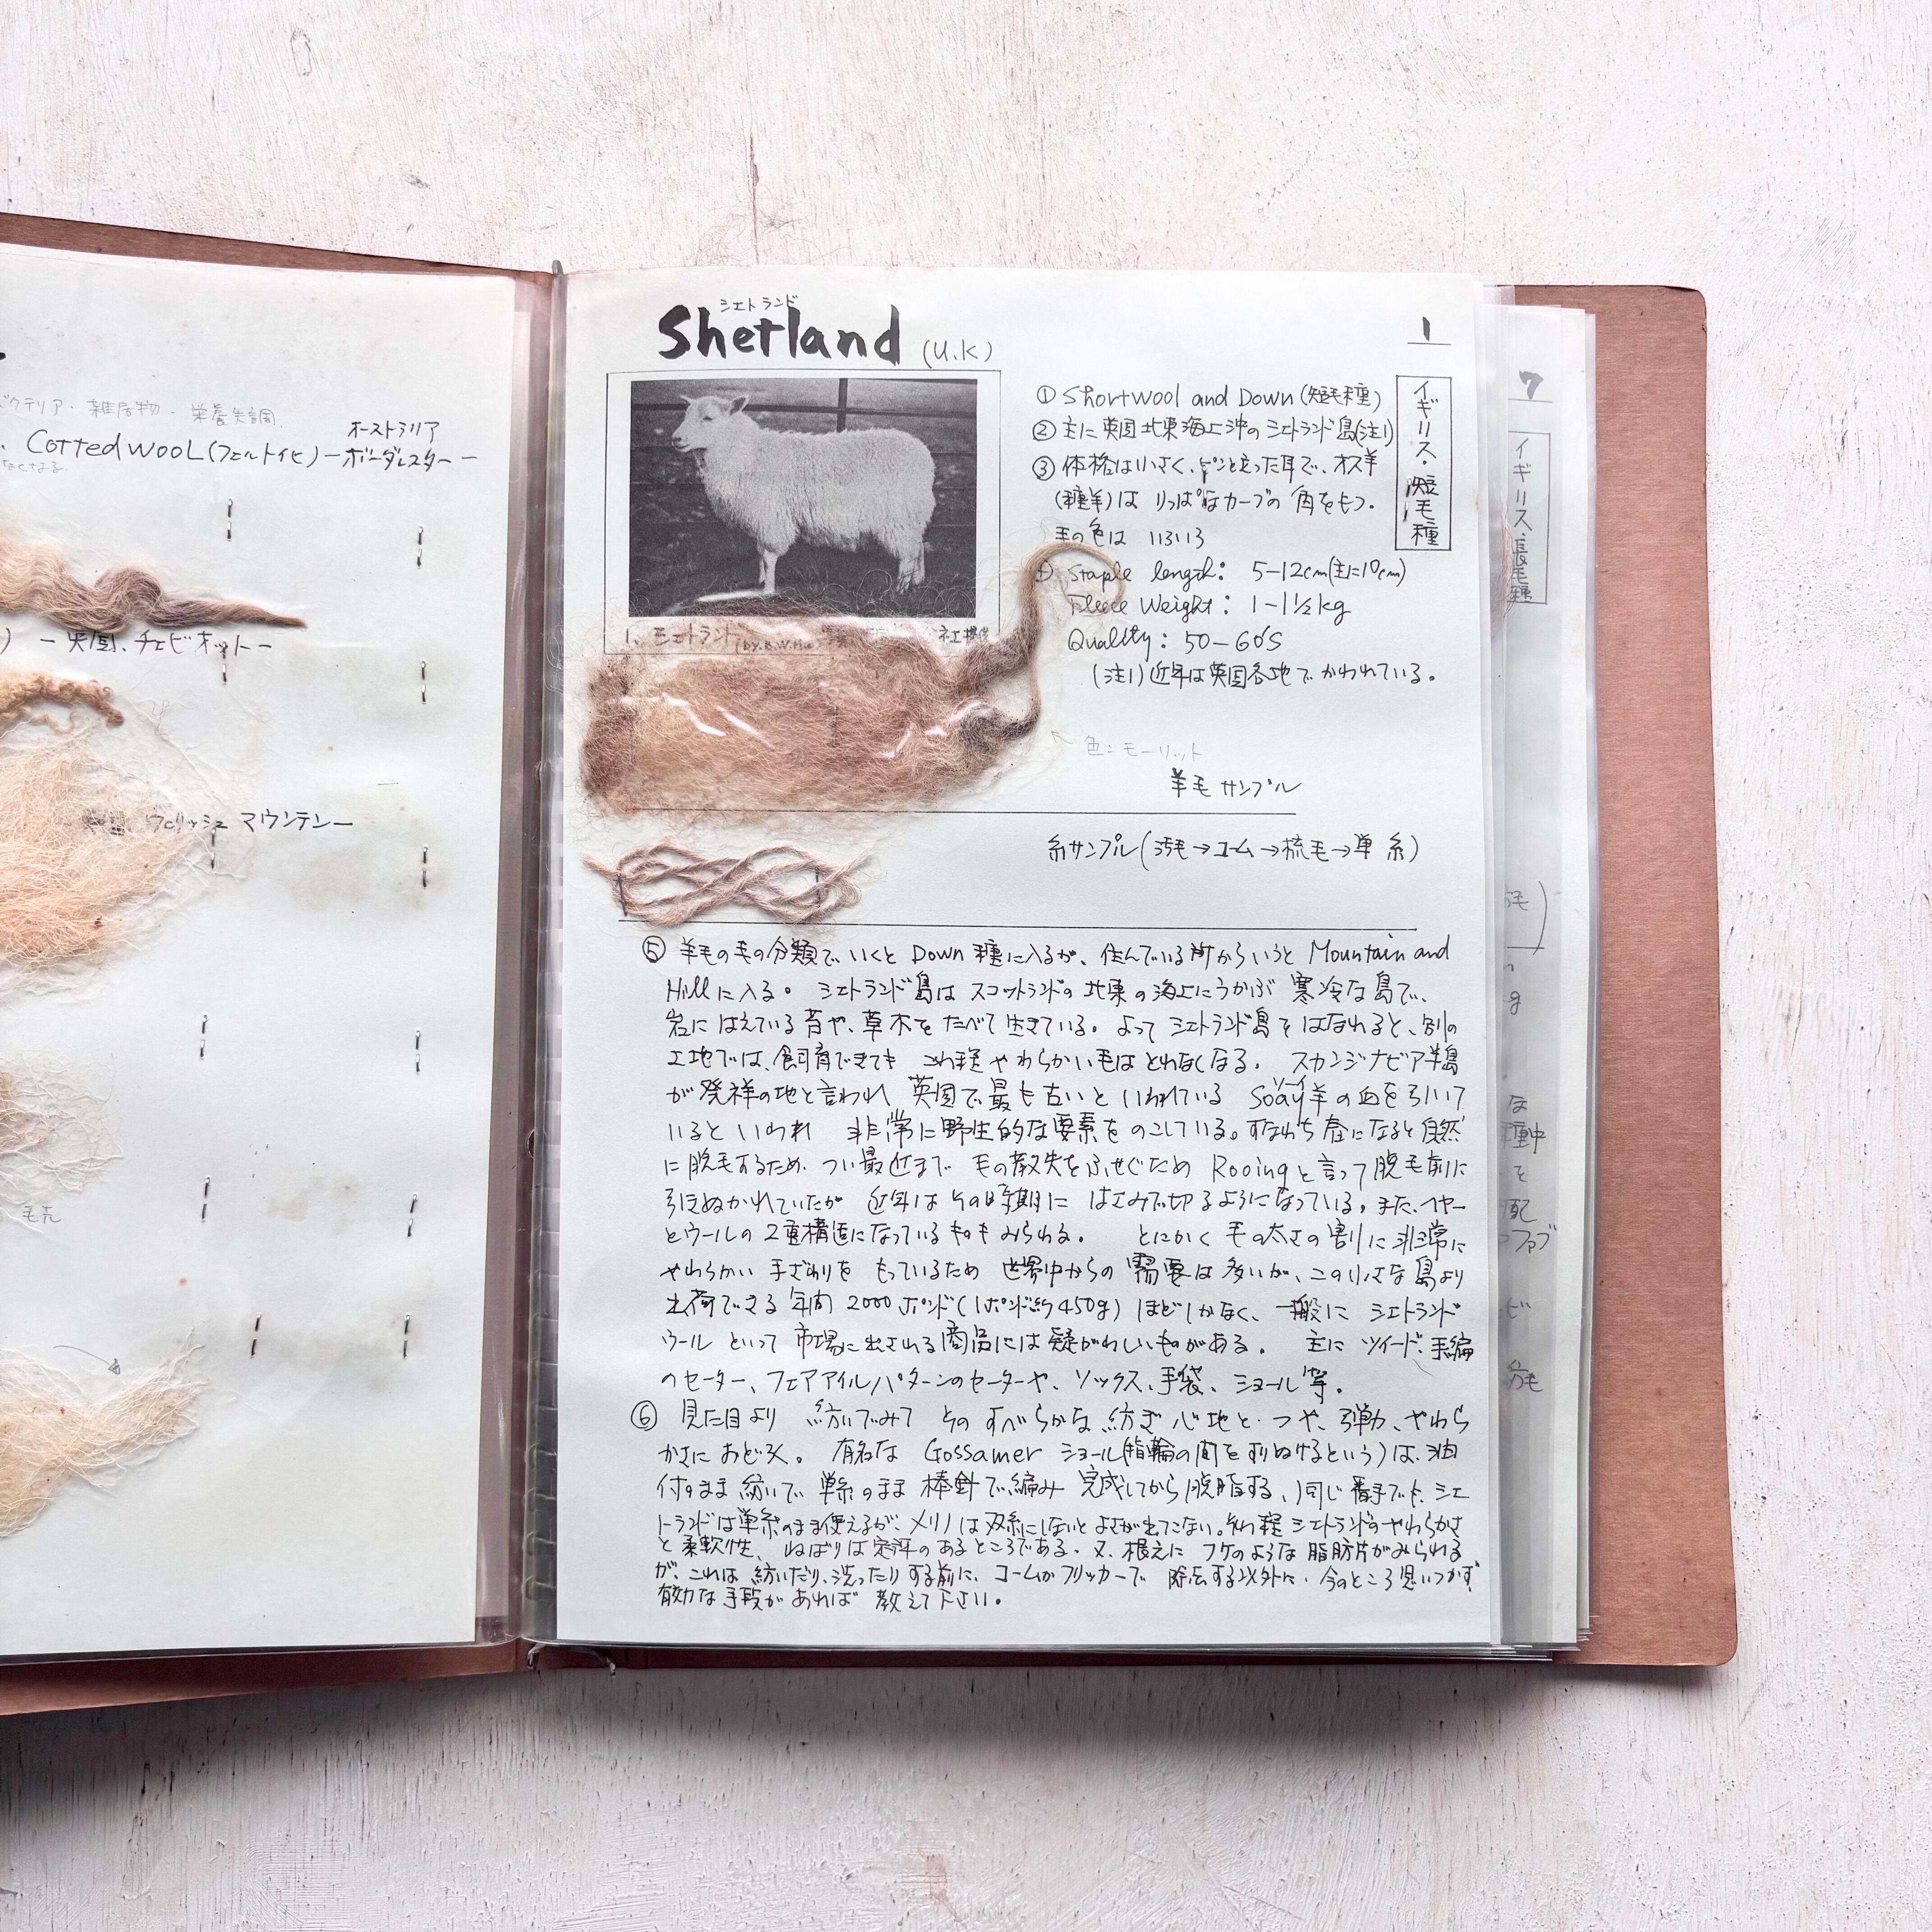 バクテリア・雑居物・栄養失調
Cotted wool (フェルト化) ー オーストラリア ボーダレスター ー
くなる
ー 英国、チェビオット ー
ウェリッシュ マウンテン ー
毛先
シェトランド
Shetland (U.K)
1
イギリス・短毛種
① Shortwool and Down (短毛種)
② 主に英国北東海上沖のシェトランド島(注1)
③ 体格は小さく、ピンと立った耳で、オス羊
(種羊)は りっぱなカーブの 角をもつ。
毛の色は いろいろ
④ Staple length: 5-12cm(主に10cm)
Fleece Weight: 1-1½kg
Quality: 50-60'S
(注1)近年は英国各地で かわれている。
1. シェトランド
色:モーリット
羊毛 サンプル
糸サンプル(洗毛→コーム→梳毛→単糸)
⑤ 羊毛の毛の分類で、いくと Down 種に入るが、住んでいる所からいうと Mountain and
Hillに入る。 シェトランド島は スコットランドの 北東の海上にうかぶ 寒冷な島で、
岩に はえている 苔や、草木を たべて 生きている。よって シェトランド島を はなれると、別の
土地では、飼育できても これ程 やわらかい毛は とれなくなる。 スカンジナビア半島
が発祥の地と言われ 英国で最も古いと いわれている Soay羊の血を引いて
ソーイ
いると いわれ 非常に野生的な要素を のこしている。すなわち 春になると 自然
に脱毛するため、つい最近まで 毛の散失を ふせぐため Rooingと言って 脱毛前に
引きぬかれていたが 近年は その時期に はさみで切るようになっている。また、ヘヤー
とウールの 2重構造になっているものも みられる。 とにかく 毛の太さの 割りに 非常に
やわらかい 手ざわりを もっているため 世界中からの 需要は 多いが、この小さな 島より
出荷できる 年間 2000ポンド(1ポンド約450g) ほどしかなく、一般に シェトランド
ウール といって 市場に出される商品には 疑がわしいものがある。 主に ツイード、手編
のセーター、フェアアイルパターンのセーターや、ソックス、手袋、ショール 等。
⑥ 見た目より 紡いでみて そのすべらかな 紡ぎ心地と・つや、弾力、やわら
かさに おどろく。 有名な Gossamer ショール(指輪の間を すりぬけるという)は、油
付のまま 紡いで 単糸のまま 棒針で、編み 完成してから 脱脂する、同じ番手でも、シェ
トランドは単糸のまま使えるが、メリノは双糸にしないと よさが出てこない。それ程 シェトランドのやわらかさ
と 柔軟性、ねばりは 定評のあるところである。又、根元に フケのような 脂肪片がみられる
が、これは 紡いだり、洗ったりする前に、コームかフリッカーで 除去する以外に、今のところ思いつかず、
有効な手段があれば 教えて下さい。
7
イギリス・長毛種